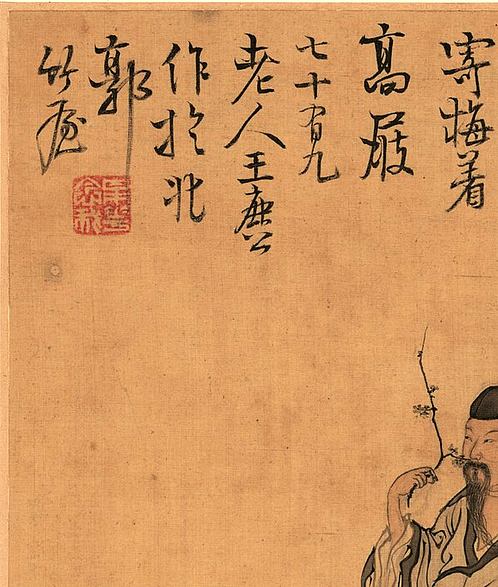 寄梅着
高屐
七十有九
老人王鹿公
作於北
郭
竹屋